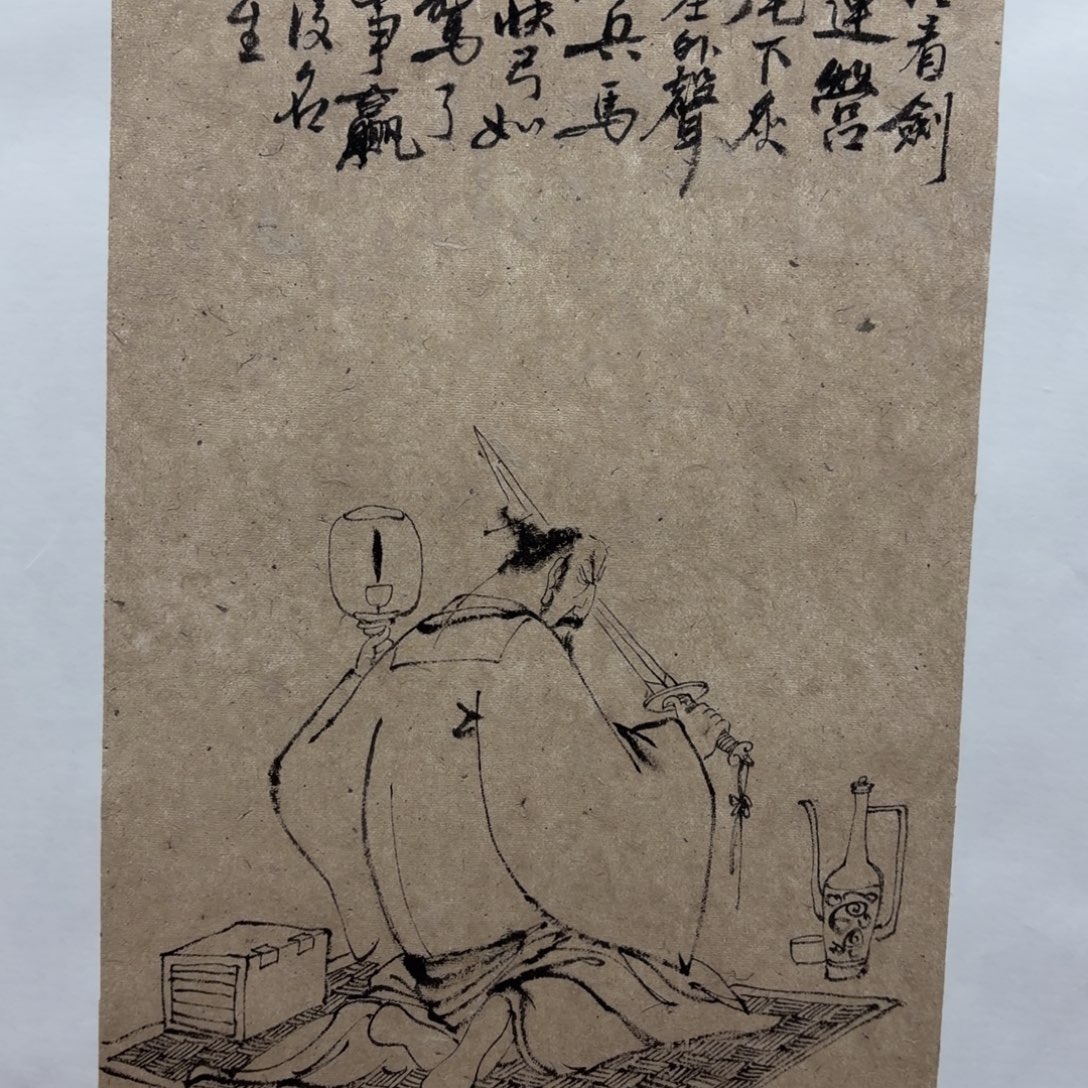 看劍
連營
下炙
外聲
兵馬
快弓如
驚了
事贏
後名
生